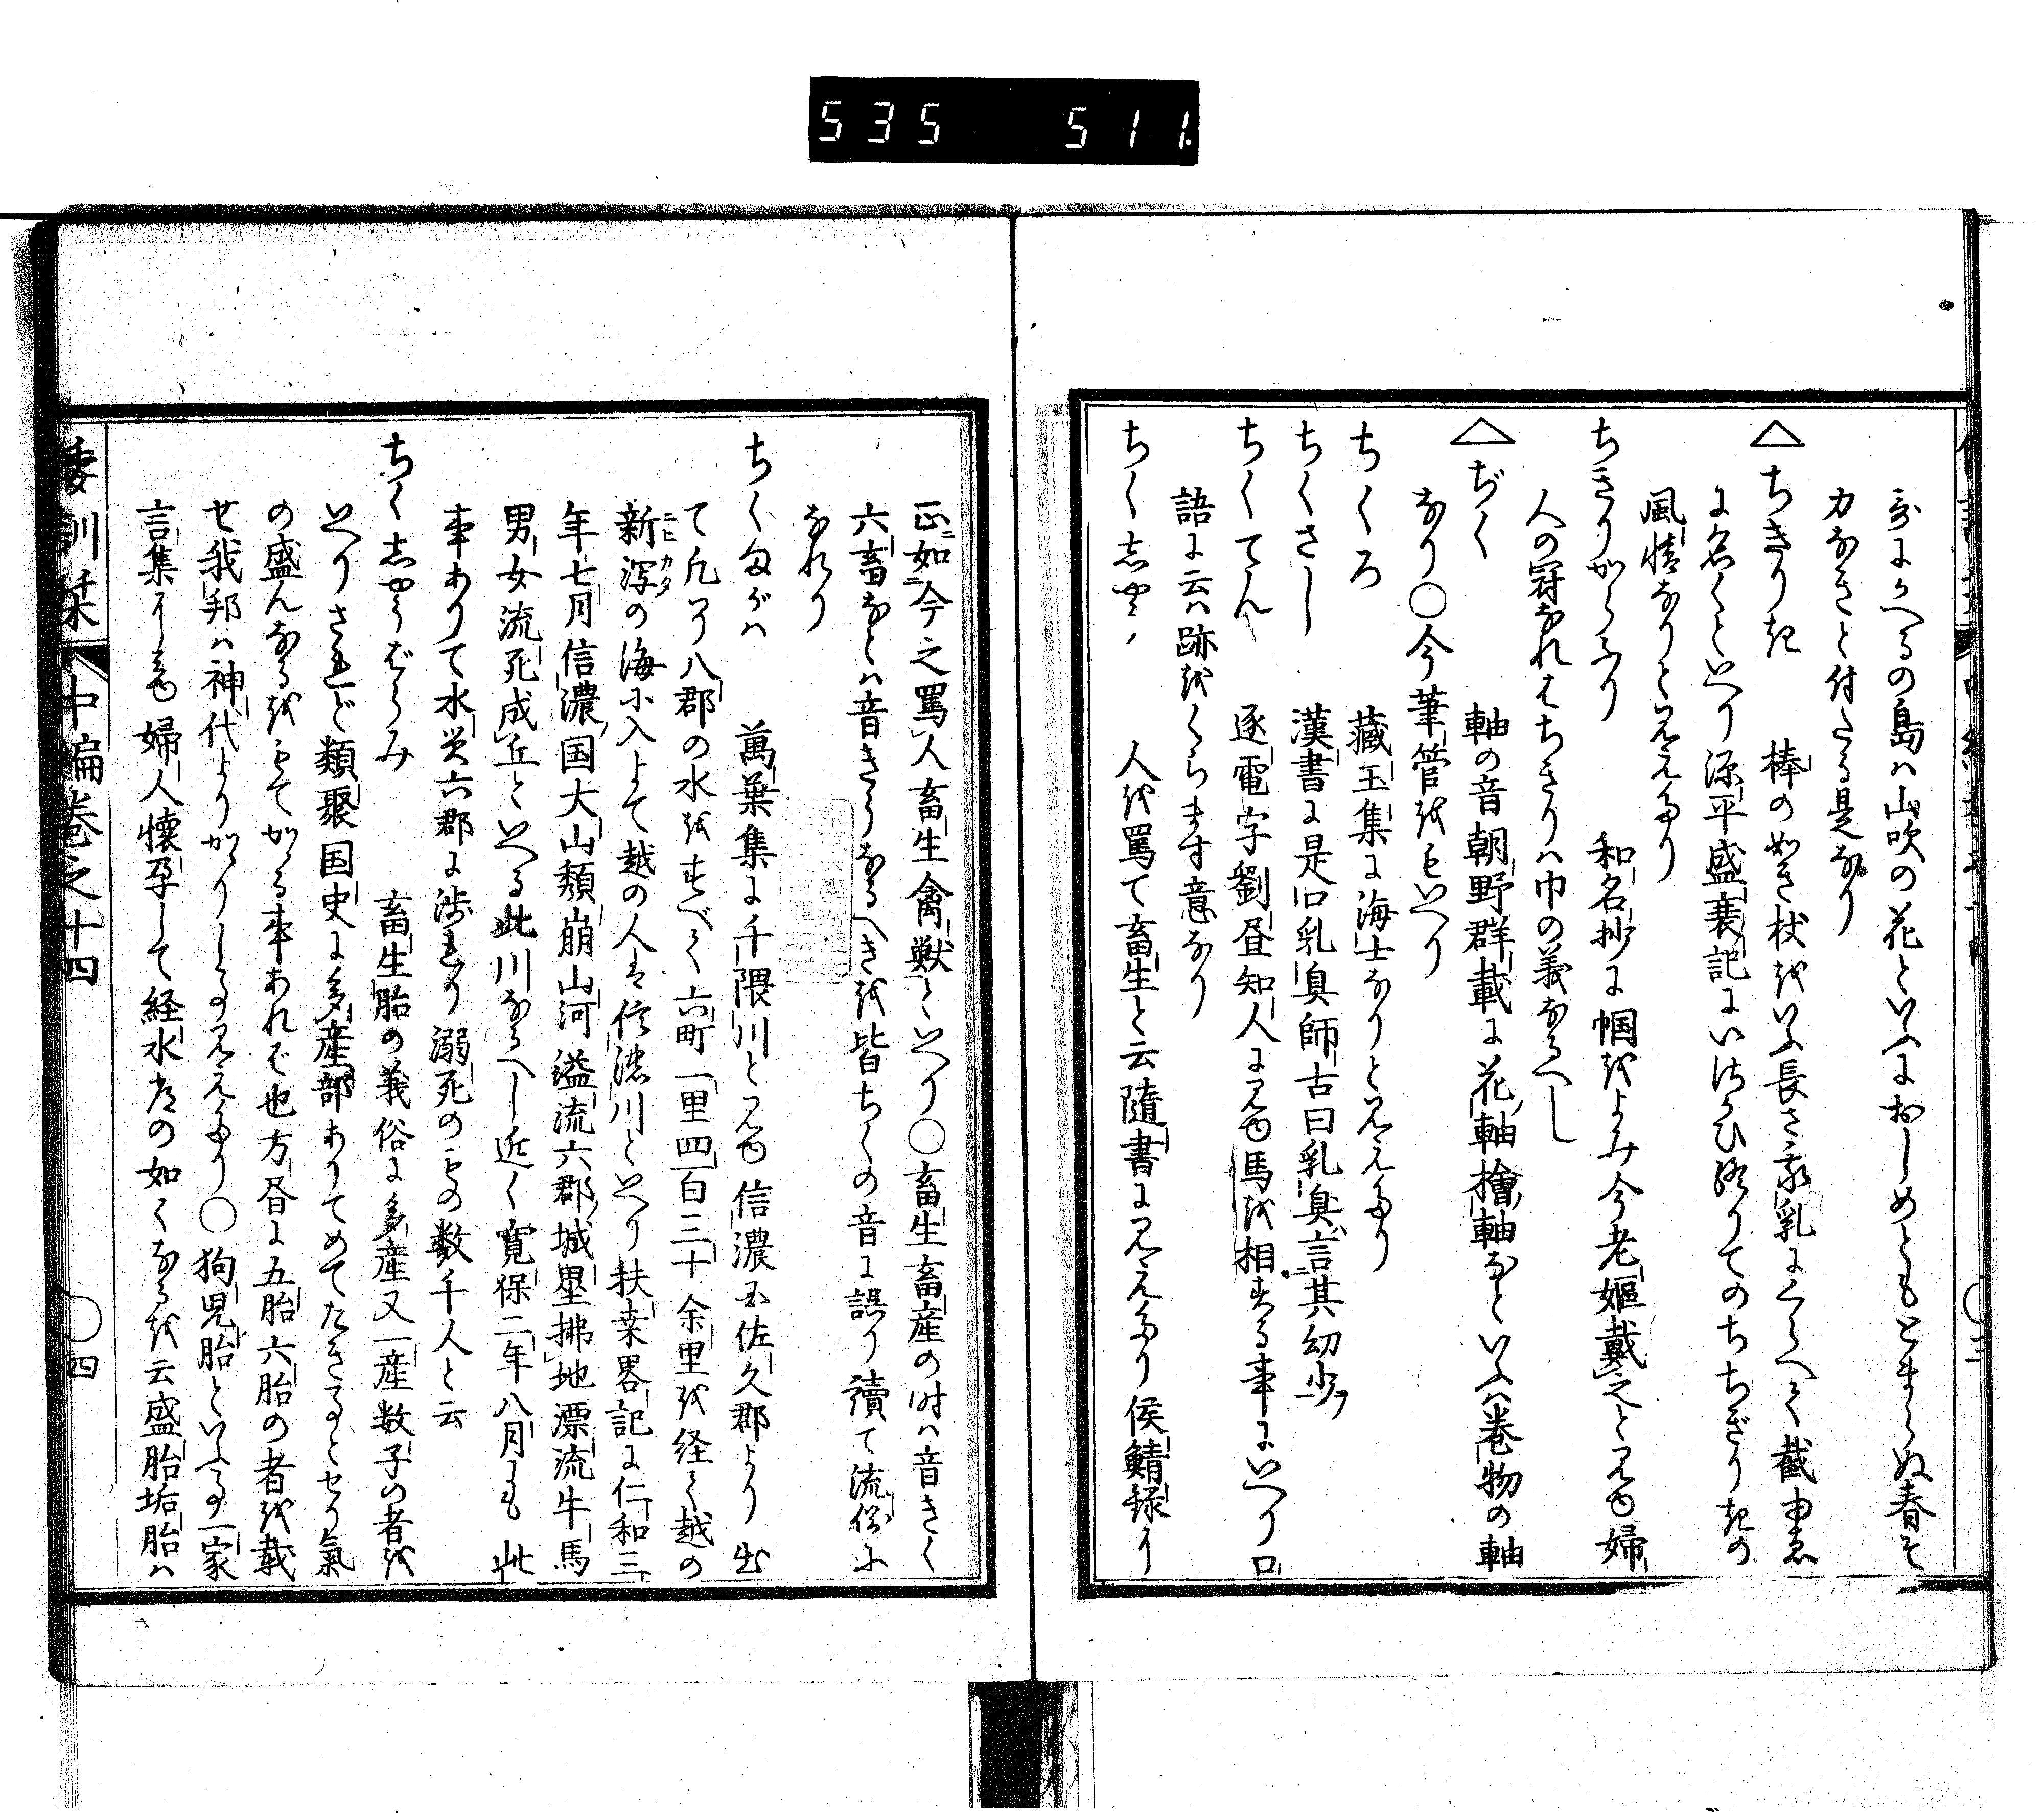 535 511.
哥にかへるの島ハ山吹の花といふにおしめともとまらぬ春そ
力なきと付たる是なり
△ちきりき 棒の如き杖をいふ長さ承乳にくらへて截
に名くといへり源平盛衰記にいはひ終りてのちちぎりきの
風情なりと見えたり
ちきりかうふり 和名抄に幗をよみ今老嫗戴之と見ゆ婦
人の冠なれはちきりハ巾の義なるへし
△ぢく 軸の音朝野群載に花軸檜軸なといふハ巻物の軸
なり〇今筆管をもいへり
ちくろ 藏玉集に海士なりと見えたり
ちくさし 漢書に是口乳臭師古曰乳臭言其幼少ヲ
ちくてん 逐電字劉昼知人に見ゆ馬を相する事にいへり口
語に云ハ跡をくらます意なり
ちくしやう 人を罵て畜生と云隨書に見えたり侯鯖録に
正如今之罵人畜生禽獣といへり〇畜生畜産の時ハ音きく
六畜なとハ音きうなるへきを皆ちくの音に誤り讀て流俗に
なれり
ちくまがハ 萬葉集に千隈川と見ゆ信濃国佐久郡より出
て凡そ八郡の水をすべて六町一里四百三十余里を経て越の
新潟ニヒカタの海に入よて越の人は信濃川といへり扶桑畧記に仁和三
年七月信濃国大山頽崩山河溢流六郡城墾拂地漂流牛馬
男女流死成丘といへる此川なるへし近く寛保二年八月にも此
事ありて水災六郡に渉れり溺死のもの数千人と云
ちくしやうばらみ 畜生胎の義俗に多産又一産数子の者を
いへりされど類聚国史に多産部ありてめてたきことせり氣
の盛んなるをもてかゝる事あれど也方昏に五胎六胎の者を載
せ我邦ハ神代よりかゝりしこと見えたり〇狗児胎といふこと一家
言集にも婦人懐孕して経水常の如くなるを云盛胎垢胎ハ
倭訓栞 中編巻之十四 四